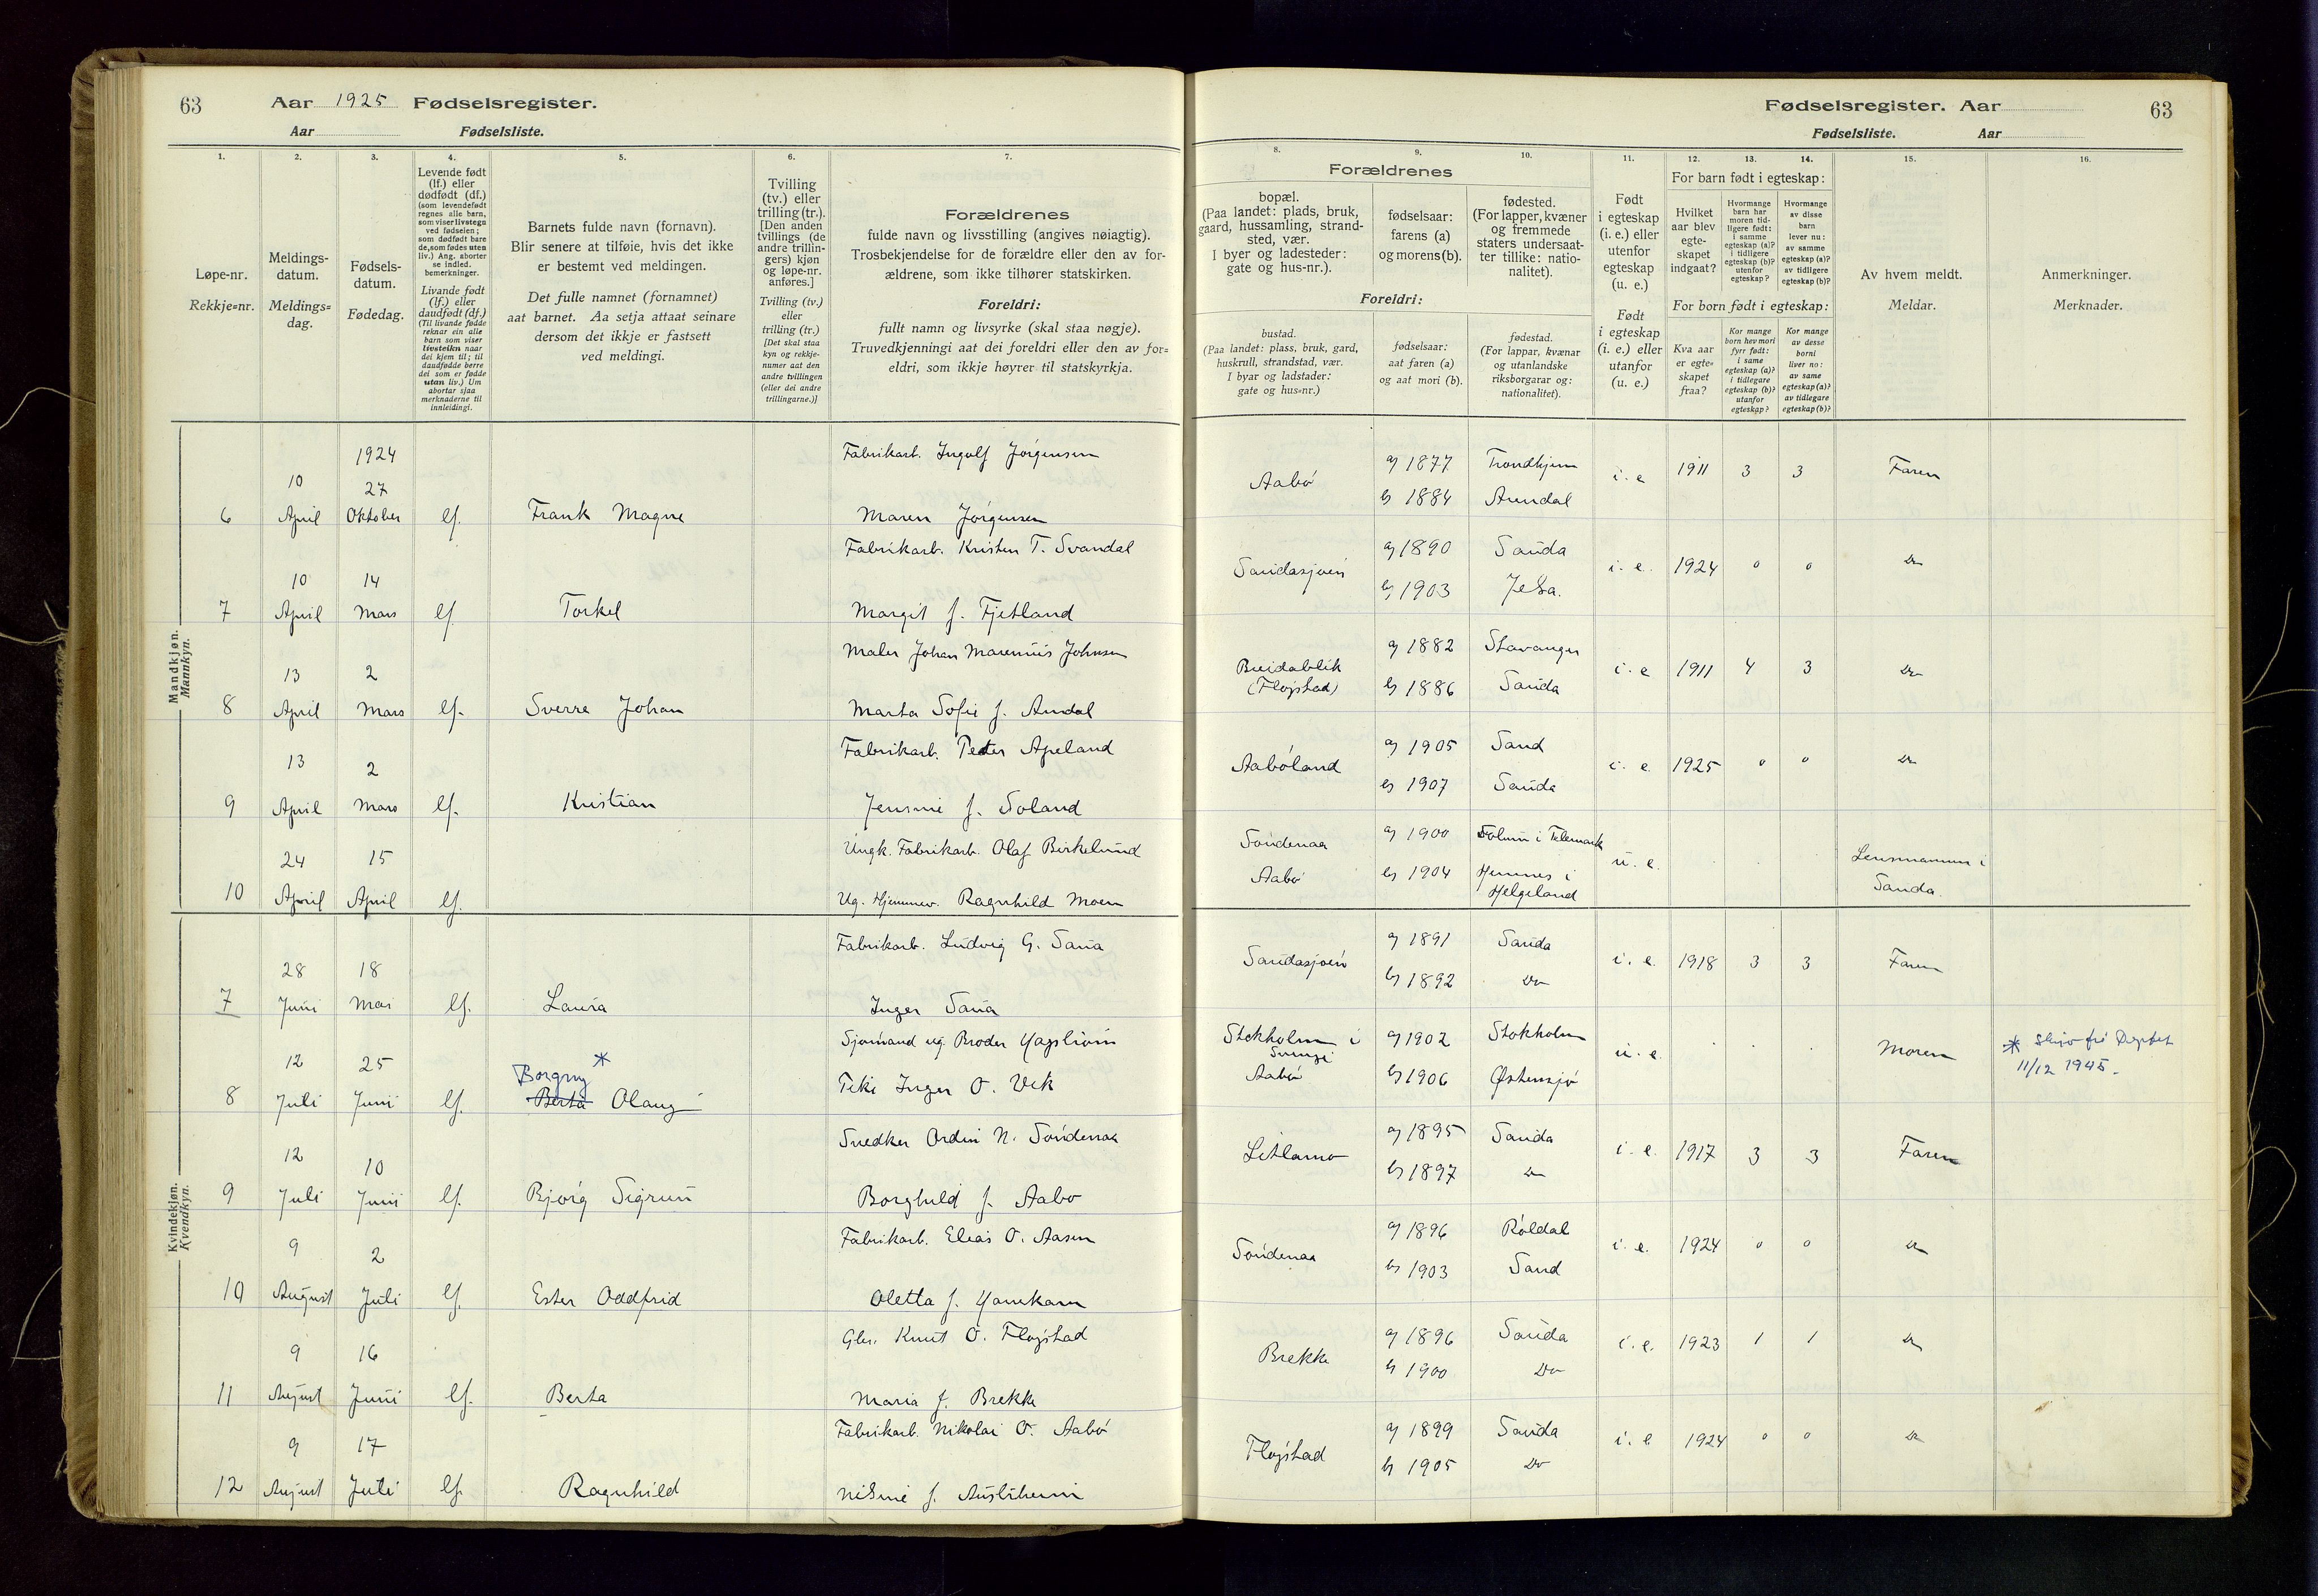 63 Aar 1925 Fødselsregister.
Aar Fødselsliste.
1. 2. 3. 4. 5. 6. 7.
Løpe-nr.
Rekkje=nr.
Meldings-
datum.
Meldings=
dag.
Fødsels-
datum.
Fødedag.
Levende født
(lf.) eller
dødfødt (df.)
(som levendefødt
regnes alle barn,
som viser livstegn
ved fødselen;
som dødfødt bare
de, som fødes uten
liv.) Ang. aborter
se indled.
bemerkninger.
Livande født
(lf.) eller
daudfødt (df.)
(Til livande fødde
reknar ein alle
barn som viser
livsteikn naar
dei kjem til; til
daudfødde berre
dei som er fødde
utan liv.) Um
abortar sjaa
merknaderne til
innleidingi.
Barnets fulde navn (fornavn).
Blir senere at tilføie, hvis det ikke
er bestemt ved meldingen.
Det fulle namnet (fornamnet)
aat barnet. Aa setja attaat seinare
dersom det ikkje er fastsett
ved meldingi.
Tvilling
(tv.) eller
trilling (tr.).
[Den anden
tvillings (de
andre trillin-
gers) kjøn
og løpe-nr.
anføres.]
Tvilling (tv.)
eller
trilling (tr.)
[Det skal staa
kyn og rekkje-
numer aat den
andre tvillingen
(eller dei andre
trillingarne.)]
Forældrenes
fulde navn og livsstilling (angives nøiagtig).
Trosbekjendelse for de forældre eller den av for-
ældrene, som ikke tilhører statskirken.
Foreldri:
fullt namn og livsyrke (skal staa nøgje).
Truvedkjenningi aat dei foreldri eller den av for=
eldri, som ikkje høyrer til statskyrkja.
Mandkjøn.
Mannkyn.
1924 Fabrikarb. Ingolf Jørgensen
10 27
6 April Oktober lf. Frank Magne Maren Jørgensen
Fabrikarb. Kristen T. Svandal
10 14
7 April Mars lf. Torkel Margit f. Fjetland
Maler Johan Marenius Johnsen
13 2
8 April Mars lf. Sverre Johan Marta Sofie f. Amdal
Fabrikarb. Peder Apeland
13 2
9 April Mars lf. Kristian Jensine f. Soland
Ungk. Fabrikarb. Olaf Birkelund
24 15
10 April April lf. Ug. Hjemmev. Ragnhild Moen
Kvindekjøn.
Kvendkyn.
Fabrikarb. Ludvig G. Saua
28 18
7 Juni Mai lf. Laura Inger Saua
Sjømand ug. Broder Hagstrøm
12 25 Borgny *
Pike Inger O. Vik
8 Juli Juni lf. Berta Olaug
Snedker Ordin N. Søndenaa
12 10
9 Juli Juni lf. Bjørg Sigrun Borghild f. Aabø
Fabrikarb. Elias O. Aasen
9 2
10 August Juli lf. Ester Oddfrid Oletta f. Hanekam
Gbr. Knut O. Fløgstad
9 16
11 August Juni lf. Berta Maria f. Brekke
Fabrikarb. Nikolai O. Aabø
9 17
12 August Juli lf. Ragnhild Nilsine f. Austrheim
Fødselsregister. Aar 63
Fødselsliste. Aar
8. 9. 10. 11. 12. 13. 14. 15. 16.
Forældrenes
bopæl.
(Paa landet: plads, bruk,
gaard, hussamling, strand-
sted, vær.
I byer og ladesteder:
gate og hus-nr.).
fødselsaar:
farens (a)
og morens (b).
fødested.
(For lapper, kvæner
og fremmede
staters undersaat-
ter tillike: natio-
nalitet).
Foreldri:
bustad.
(Paa landet: plass, bruk, gard,
huskrull, strandstad, vær.
I byar og ladstader:
gate og hus=nr.)
fødselsaar:
aat faren (a)
og aat mori (b).
fødestad.
(For lappar, kvænar
og utanlandske
riksborgarar og:
nationalitet).
Født
i egteskap
(i. e.) eller
utenfor
egteskap
(u. e.)
Født
i egteskap
(i. e.) eller
utanfor
egteskap
(u. e.)
For barn født i egteskap:
Hvilket
aar blev
egte-
skapet
indgaat?
Hvormange
barn har
moren tid-
ligere født:
i samme
egteskap (a)?
i tidligere
egteskap (b)?
utenfor
egteskap?
Hvormange
av disse
barn
lever nu:
av samme
egteskap (a)?
av tidligere
egteskap (b)?
For born født i egteskap:
Kva aar
er egte-
skapet
fraa?
Kor mange
born hev mori
fyrr født:
i same
egteskap (a)?
i tidlegare
egteskap (b)?
utanfor
egteskap?
Kor mange
av desse
borni
liver no:
av same
egteskap (a)?
av tidlegare
egteskap (b)?
Av hvem meldt.
Meldar.
Anmerkninger.
Merknader.
Aabø a) 1877 Trondhjem i. e 1911 3 3 Faren
b) 1884 Arendal
Saudasjøen a) 1890 Sauda i. e. 1924 0 0 Do
b) 1903 Jelsa.
Breidablik a) 1882 Stavanger i. e 1911 4 3 Do
(Fløgstad) b) 1886 Sauda
Aabøland a) 1905 Sand i. e. 1925 0 0 Do
b) 1907 Sauda
Søndenaa a) 1900 Solum i Telemark u. e. Lensmannen i
Aabø b) 1904 Hemnes i Sauda.
Helgeland
Saudasjøen a) 1891 Sauda i. e. 1918 3 3 Faren
b) 1892 Do
Stokholm i a) 1902 Stokholm u. e. Moren
Sverige
Aabø b) 1906 Østensjø
* Skriv frå Deptet
11/12 1945.
Litlamo a) 1895 Sauda i. e. 1917 3 3 Faren
b) 1897 Do
Søndenaa a) 1896 Røldal i. e. 1924 0 0 Do
b) 1903 Sand
Brekke a) 1896 Sauda i. e. 1923 1 1 Do
b) 1900 Do
Fløgstad a) 1899 Sauda i. e 1924 0 0 Do
b) 1905 Do